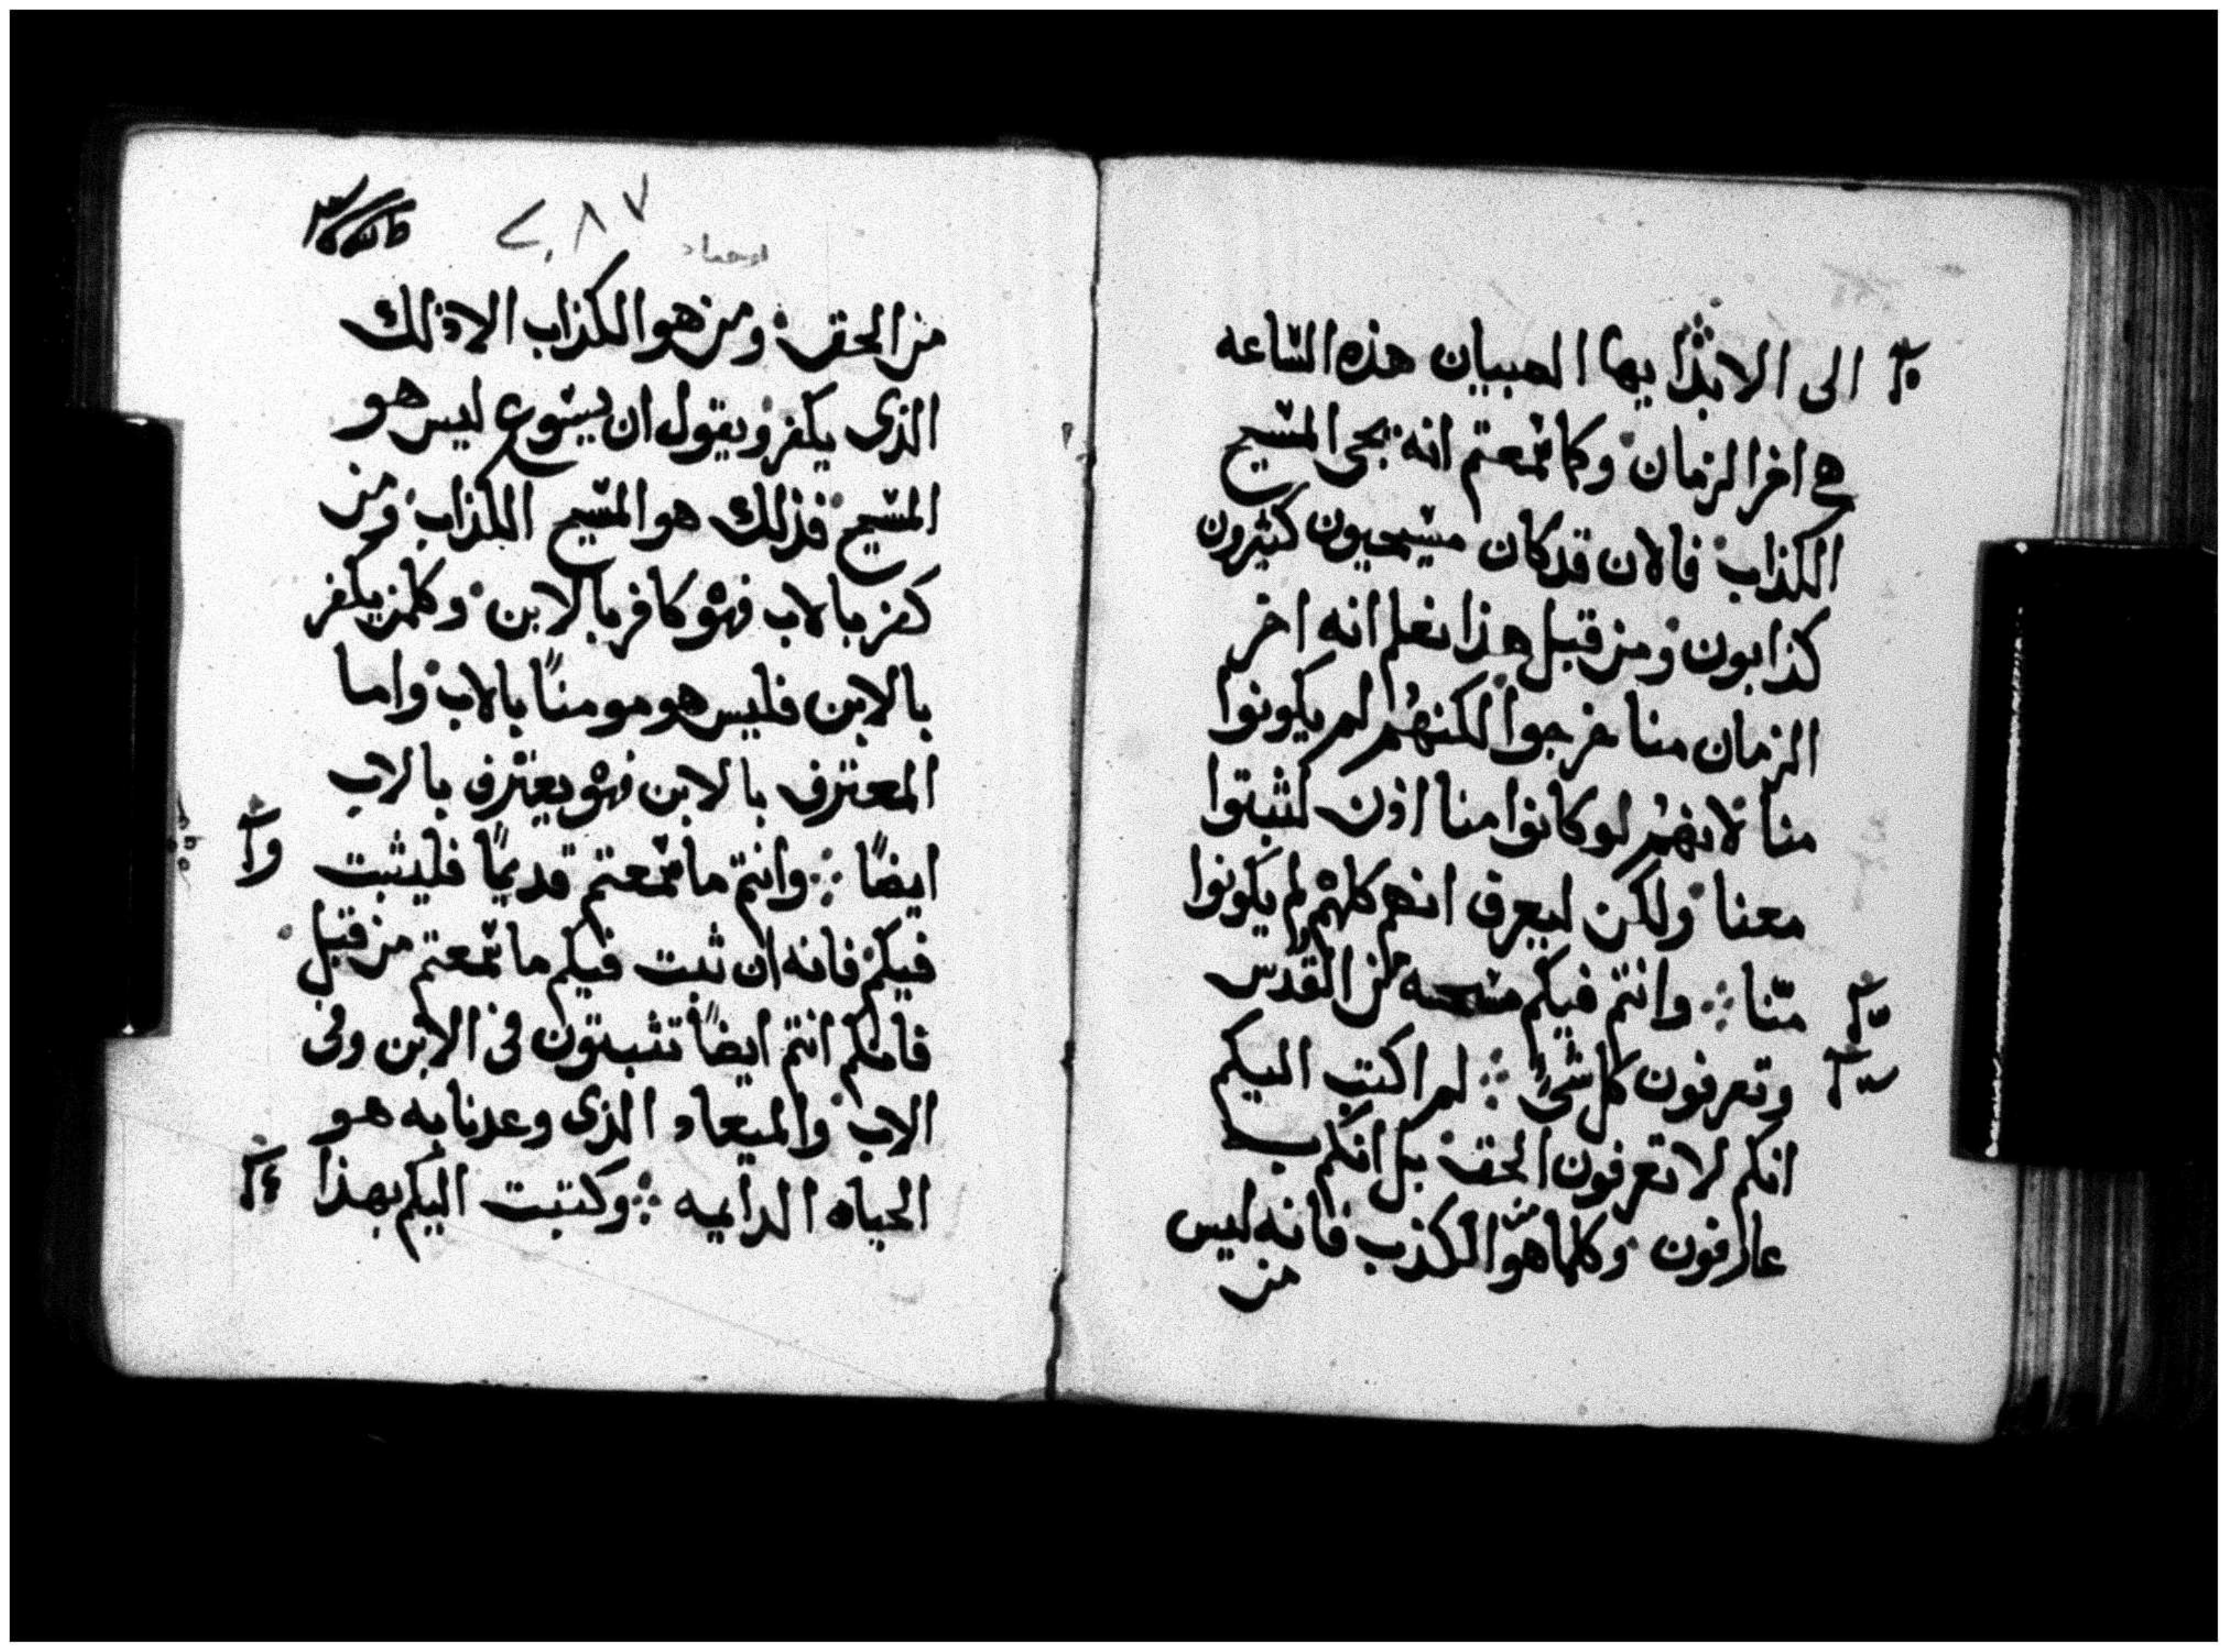 الى الابد ايها الصبيان هذه الساعه
هى اخر الزمان وكما سمعتم انه يجى المسيح
الكذاب فالان قد كان مسيحيون كثيرون
كذابون ومن قبل هذا نعلم انه اخر
الزمان منا خرجوا لكنهم لم يكونوا
منا لانهم لو كانوا منا اذن لثبتوا
معنا ولكن ليعرف انهم كلهم لم يكونوا
منّا وانتم فيكم مسحه من القدس
وتعرفون كل شىً لم اكتب اليكم
انكم لا تعرفون الحق بل انكم به
عارفون وكلما هو من الكذب فانه ليس
من
٢٨٧
من الحق ومن هو الكذاب الا ذلك
الذى يكفر ويقول ان يسوع ليس هو
المسيح فذلك هو المسيح الكذاب ومن
كفر بالاب فهو كافر بالابن وكلمن يكفر
بالابن فليس هو مومناً بالاب واما
المعترف بالابن فهو يعترف بالاب
ايضاً وانتم ما سمعتم قديماً فليثبت
فيكم فانه ان ثبت فيكم ما سمعتم من قبل
فانكم انتم ايضاً تثبتون فى الابن وفى
الاب والميعاد الذى وعدنا به هو
الحياه الدايمه وكتبت اليكم بهذا